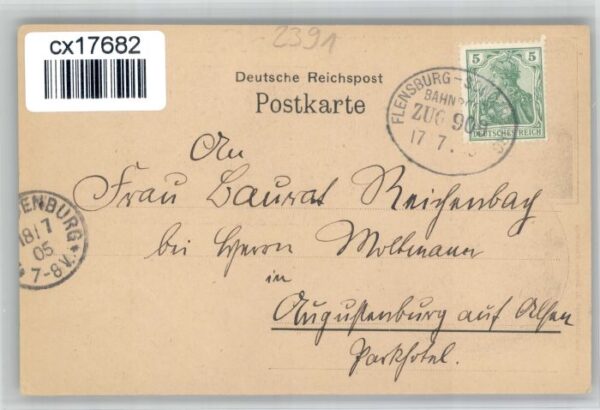 cx17682
2391
Deutsche Reichspost
Postkarte
5 5
DEUTSCHES REICH
FLENSBURG-
BAHNPO
ZUG 90
17 7.
An
Frau Baurat Reichenbach
bei Herrn Moltmann
in
Augustenburg auf Alsen
Parkhotel.
ENBURG
18/7
05
7-8V.